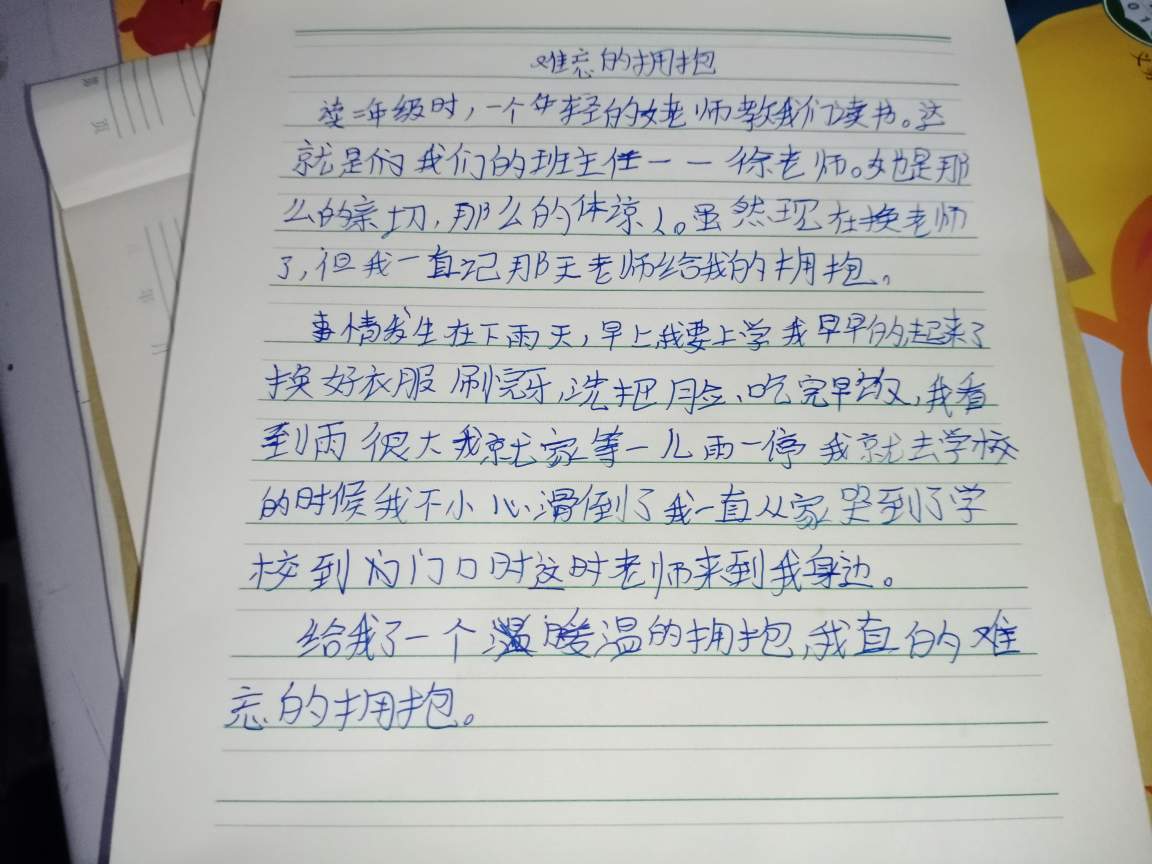 难忘的拥抱
读二年级时，一个年轻的姥师教我们读书。这
就是们我们的班主任一一徐老师。她是那
么的亲切，那么的体谅人。虽然现在换老师
了，但我一直记那天老师给我的拥抱。
事情发生在下雨天，早上我要上学我早早的起来了
换好衣服刷完牙，洗把脸、吃完早饭，我看
到雨很大我就家等一儿雨一停我就去学校
的时候我不小心滑倒了我一直从家哭到了学
校到门口时这时老师来到我身边。
给我了一个暖温的拥抱，我直的难
忘的拥抱。